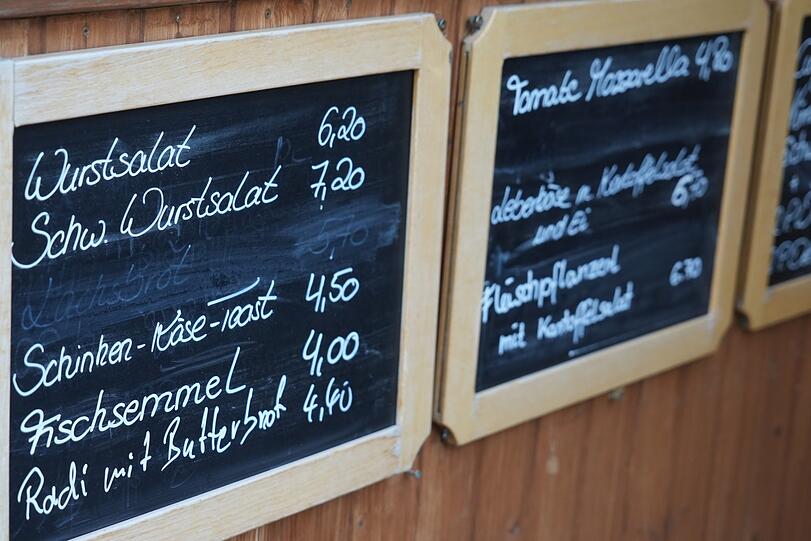 Wurstsalat 6,20
Schw. Wurstsalat 7,20
Lachsbrot 5,70
Schinken-Käse-Toast 4,50
Fischsemmel 4,00
Radi mit Butterbrot 4,40
Tomate Mozzarella 4,80
Leberkäse m. Kartoffelsalat
und Ei
Fleischpflanzerl 6.70
mit Kartoffelsalat